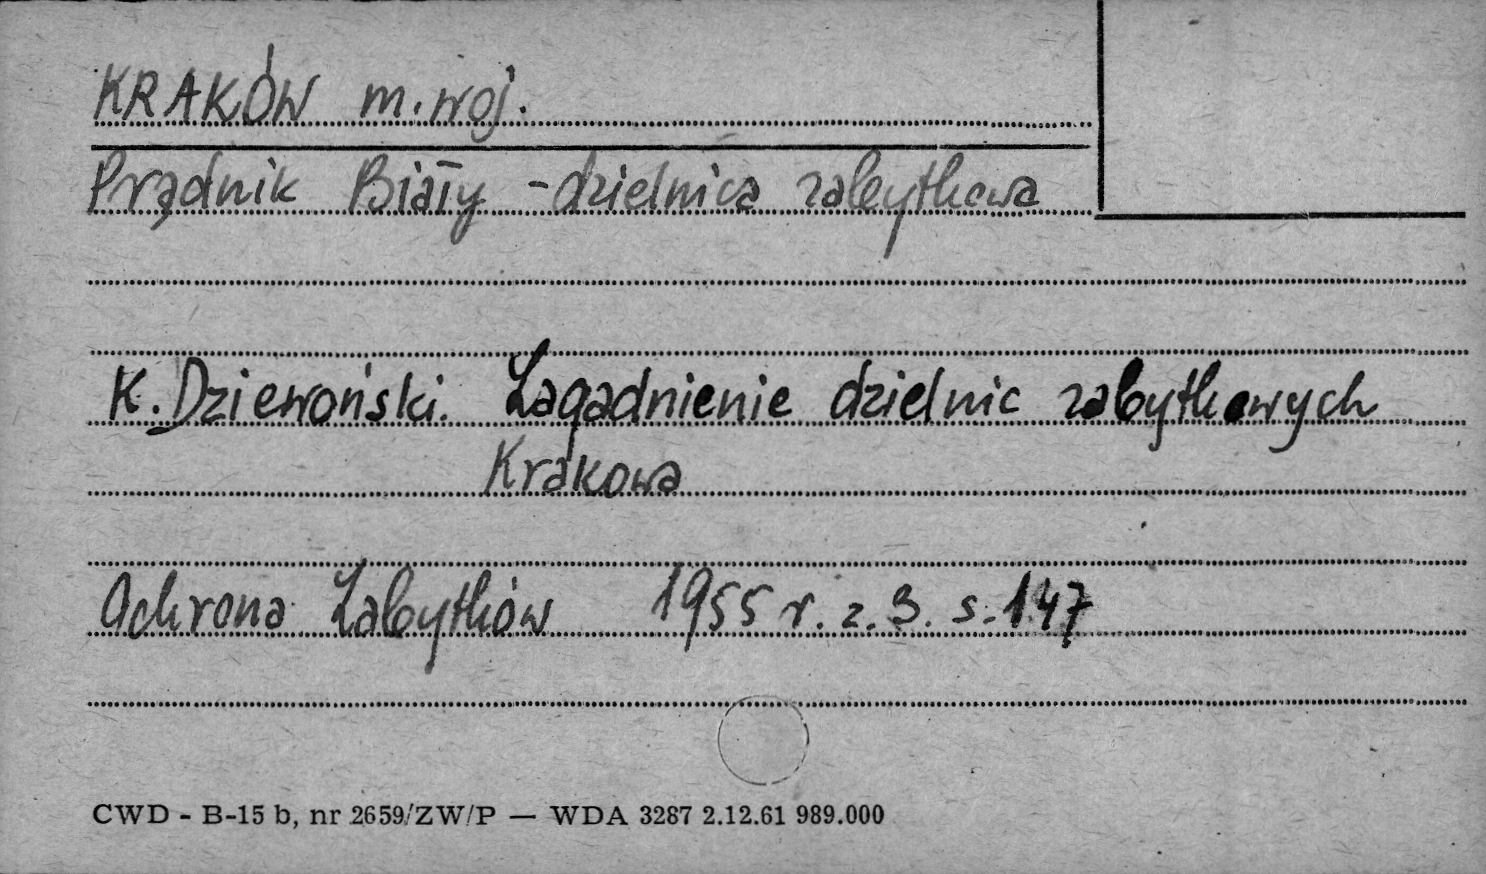 KRAKÓW m. woj.
Prądnik Biały - dzielnica zabytkowa
K. Dziewoński. Zagadnienie dzielnic zabytkowych
Krakowa
Ochrona Zabytków 1955 r. z. 3. s. 147
CWD - B-15 b, nr 2659/ZW/P — WDA 3287 2.12.61 989.000